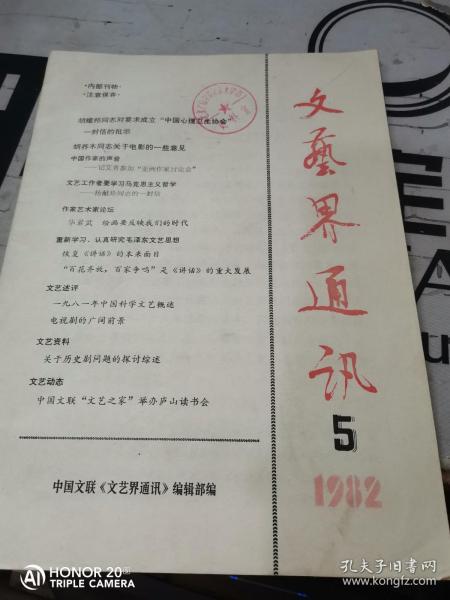 ·内部刊物·
·注意保存·
胡耀邦同志对要求成立“中国心理卫生协会”
一封信的批示
胡乔木同志关于电影的一些意见
中国作家的声音
——记艾青参加“亚洲作家讨论会”
文艺工作者要学习马克思主义哲学
同志的一封信
作家艺术家论坛
华君武 绘画要反映我们的时代
重新学习、认真研究毛泽东文艺思想
恢复《讲话》的本来面目
“百花齐放，百家争鸣”是《讲话》的重大发展
文艺述评
一九八一年中国科学文艺概述
电视剧的广阔前景
文艺资料
关于历史剧问题的探讨综述
文艺动态
中国文联“文艺之家”举办庐山读书会
中国文联《文艺界通讯》编辑部编
文艺界通讯
5
1982
HONOR 20
TRIPLE CAMERA
孔夫子旧书网
www.kongfz.com